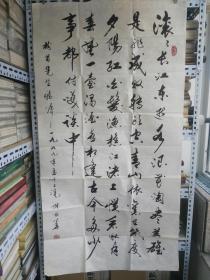 滚滚长江东逝水浪花淘尽英雄
是非成败转头空青山依旧在几度
夕阳红白发渔樵江渚上惯看秋月
春风一壶浊酒喜相逢古今多少
事都付笑谈中
先生 一九九八年